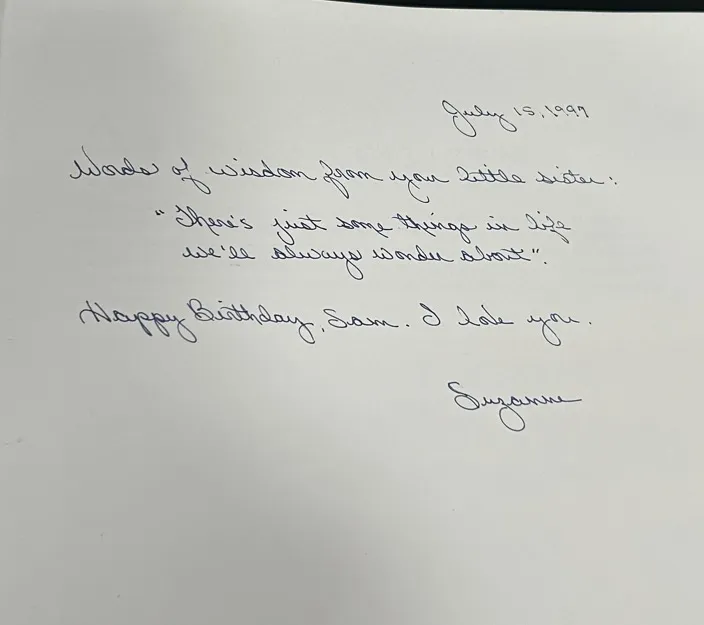 July 15, 1997
Words of wisdom from your little sister:
"There's just some things in life
we'll always wonder about".
Happy Birthday, Sam. I love you.
Suzanne